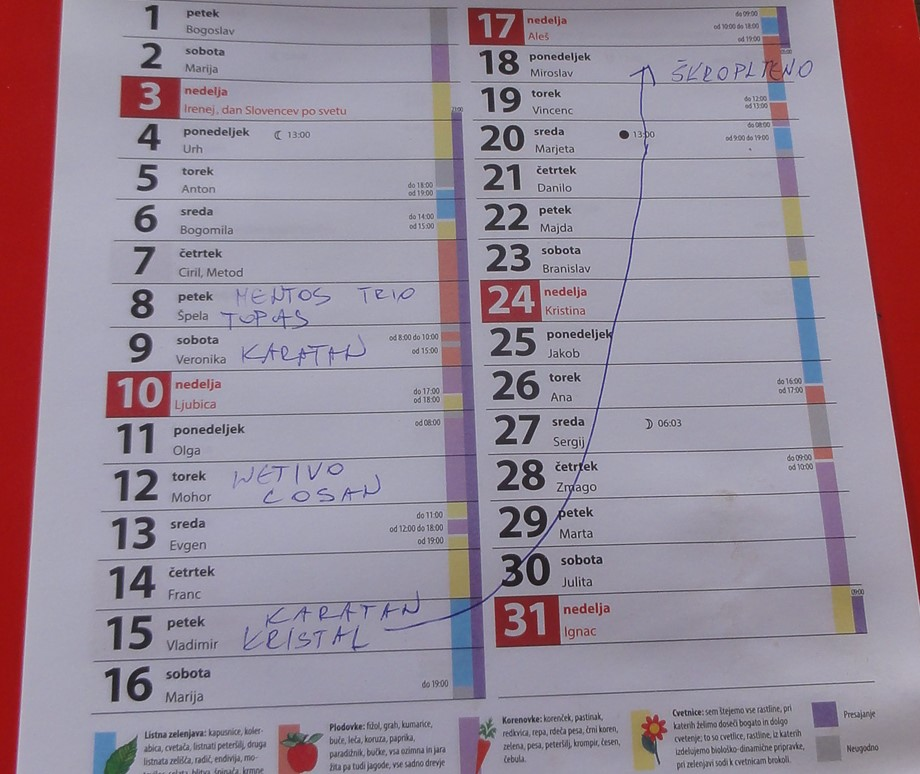 1 petek
Bogoslav
2 sobota
Marija
3 nedelja
Irenej, dan Slovencev po svetu
23:00
4 ponedeljek 13:00
Urh
5 torek
Anton
do 18:00
od 19:00
6 sreda
Bogomila
do 14:00
od 15:00
7 četrtek
Ciril, Metod
8 petek MENTOS TRIO
Špela TOPAS
9 sobota
Veronika KARATAN
od 8:00 do 10:00
od 15:00
10 nedelja
Ljubica
do 17:00
od 18:00
11 ponedeljek
Olga
od 08:00
12 torek WETIVO
Mohor COSAN
13 sreda
Evgen
do 11:00
od 12:00 do 18:00
od 19:00
14 četrtek
Franc
15 petek KARATAN
Vladimir KRISTAL
16 sobota
Marija
do 19:00
17 nedelja
Aleš
do 09:00
od 10:00 do 18:00
od 19:00
18 ponedeljek
Miroslav
ŠKROPLTENO
19 torek
Vincenc
do 12:00
od 13:00
20 sreda 13:00
Marjeta
do 08:00
od 9:00 do 19:00
21 četrtek
Danilo
22 petek
Majda
23 sobota
Branislav
24 nedelja
Kristina
25 ponedeljek
Jakob
26 torek
Ana
do 16:00
od 17:00
27 sreda 06:03
Sergij
28 četrtek
Zmago
do 09:00
od 10:00
29 petek
Marta
30 sobota
Julita
31 nedelja
Ignac
09:00
Listna zelenjava: kapusnice, koler-
abica, cvetača, listnati peteršilj, druga
listnata zelišča, radič, endivija, mo-
Plodovke: fižol, grah, kumarice,
buče, leča, koruza, paprika,
paradižnik, bučke, vsa ozimna in jara
žita pa tudi jagode, vse sadno drevje
Korenovke: korenček, pastinak,
redkvica, repa, rdeča pesa, črni koren,
zelena, pesa, peteršilj, krompir, česen,
čebula.
Cvetnice: sem štejemo vse rastline, pri
katerih želimo doseči bogato in dolgo
cvetenje; to so cvetlice, rastline, iz katerih
izdelujemo biološko-dinamične pripravke,
pri zelenjavi sodi k cvetnicam brokoli.
Presajanje
Neugodno